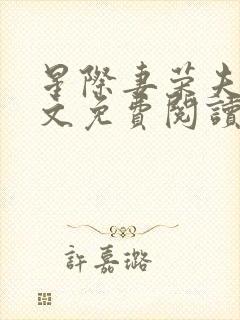 星際妻榮夫
文免費閱讀
許嘉璐